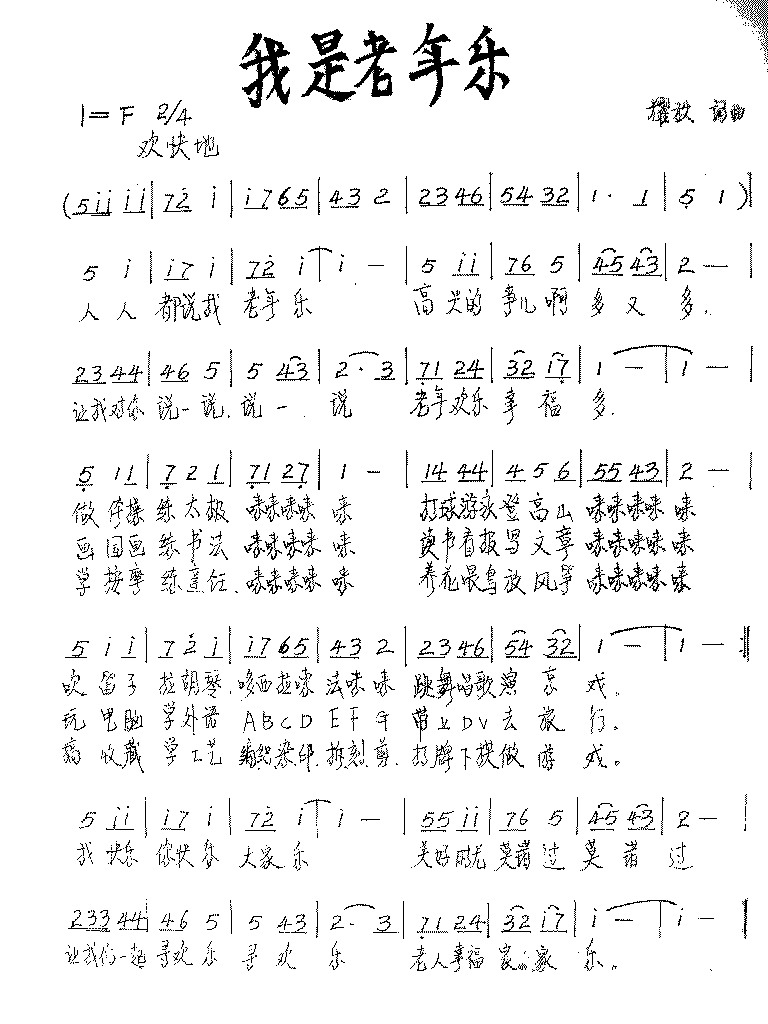 我是老年乐
1=F 2/4
耀 词曲
欢快地
(5ii ii | 72 i | i7 65 | 43 2 | 23 46 | 54 32 | 1· 1 | 5 1 )‖
5 i | i7 i | 72 i | i — | 5 ii | 76 5 | 45 43 | 2 — |
人人 都说我 老年乐 高兴的 事儿啊 多又多.
23 44 | 46 5 | 5 43 | 2· 3 | 71 24 | 32 17 | 1 — | 1 — |
让我对你 说一说. 说一 说 老年欢乐 幸福多.
5 11 | 7 2 1 | 71 27 | 1 — | 14 44 | 4 5 6 | 55 43 | 2 — |
做体操 练太极 味味味味 味 打球游泳 登高山 味味味味 味
画国画 练书法 味味味味 味 读书看报 写文章 味味味味 味
学按摩 练烹饪. 味味味味 味 养花喂鸟 放风筝 味味味味 味
5 i i | 7 2 i | i7 65 | 43 2 | 23 46 | 54 32 | 1 — | 1 — :‖
吹笛子 拉胡琴. 哆西拉味 法味味 跳舞唱歌 演京戏。
玩电脑 学外语 ABCD EFG 带上DV 去旅行。
搞收藏 学工艺 编织染印. 拆刻剪. 打牌下棋 做游戏。
5 ii | i7 i | 72 i | i — | 55 ii | 76 5 | 45 43 | 2 — |
我快乐 你快乐 大家乐 美好时光 莫错过 莫错过
233 44 | 46 5 | 5 43 | 2· 3 | 71 24 | 32 i7 | i — | i — ‖
让我们一起 寻欢乐 寻欢 乐 老人幸福 家家乐。